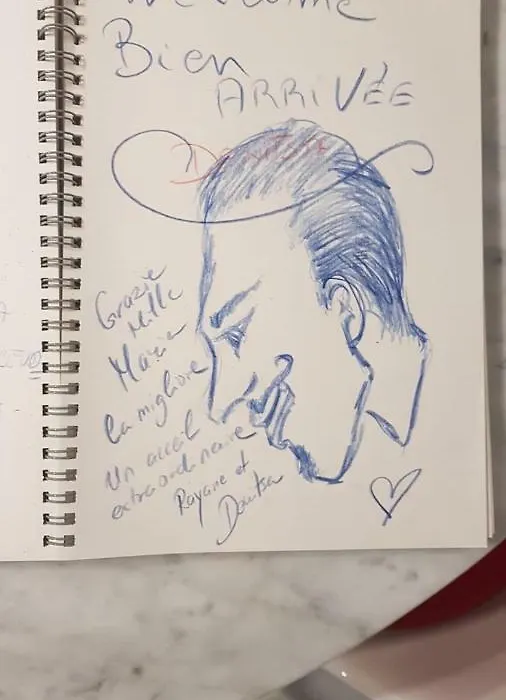 Welcome
Bien
ARRIVÉE
Grazie
Mille
Maria
la migliore
un accueil
extraordinaire
Rayane et